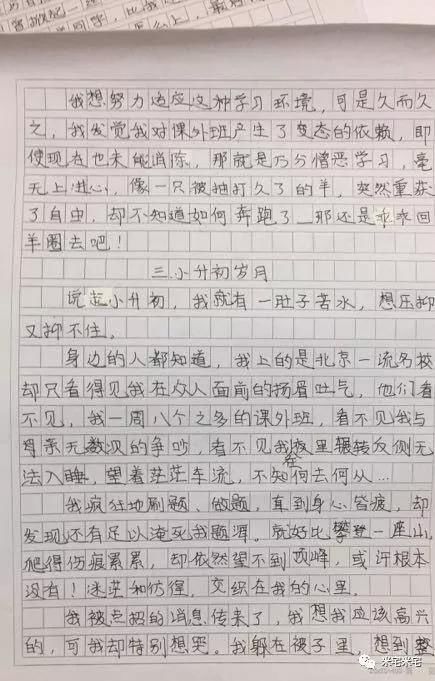 我想努力适应这种学习环境，可是久而久
之，我发觉我对课外班产生了变态的依赖，即
使现在也未能消除，那就是万分憎恶学习，毫
无上进心，像一只被抽打久了的羊，突然重获
了自由，却不知道如何奔跑了 那还是乖乖回
羊圈去吧！
三.小升初岁月
说起小升初，我就有一肚子苦水，想压抑
又抑不住。
身边的人都知道，我上的是北京一流名校
却只看得见我在众人面前的扬眉吐气，他们看
不见，我一周八个之多的课外班，看不见我与
母亲无数次的争吵，看不见我夜里辗转反侧无
法入睡，望着茫茫车流，不知何去何从…
我疯狂地刷题、做题，直到身心皆疲，却
发现还有足以淹死我题海。就好比攀登一座山，
爬得伤痕累累，却依然望不到顶峰，或许根本
没有！迷茫和彷徨，交织在我的心里。
我被点招的消息传来了，我想我应该高兴
的，可我却特别想哭。我躲在被子里，想到整
米宅米宅